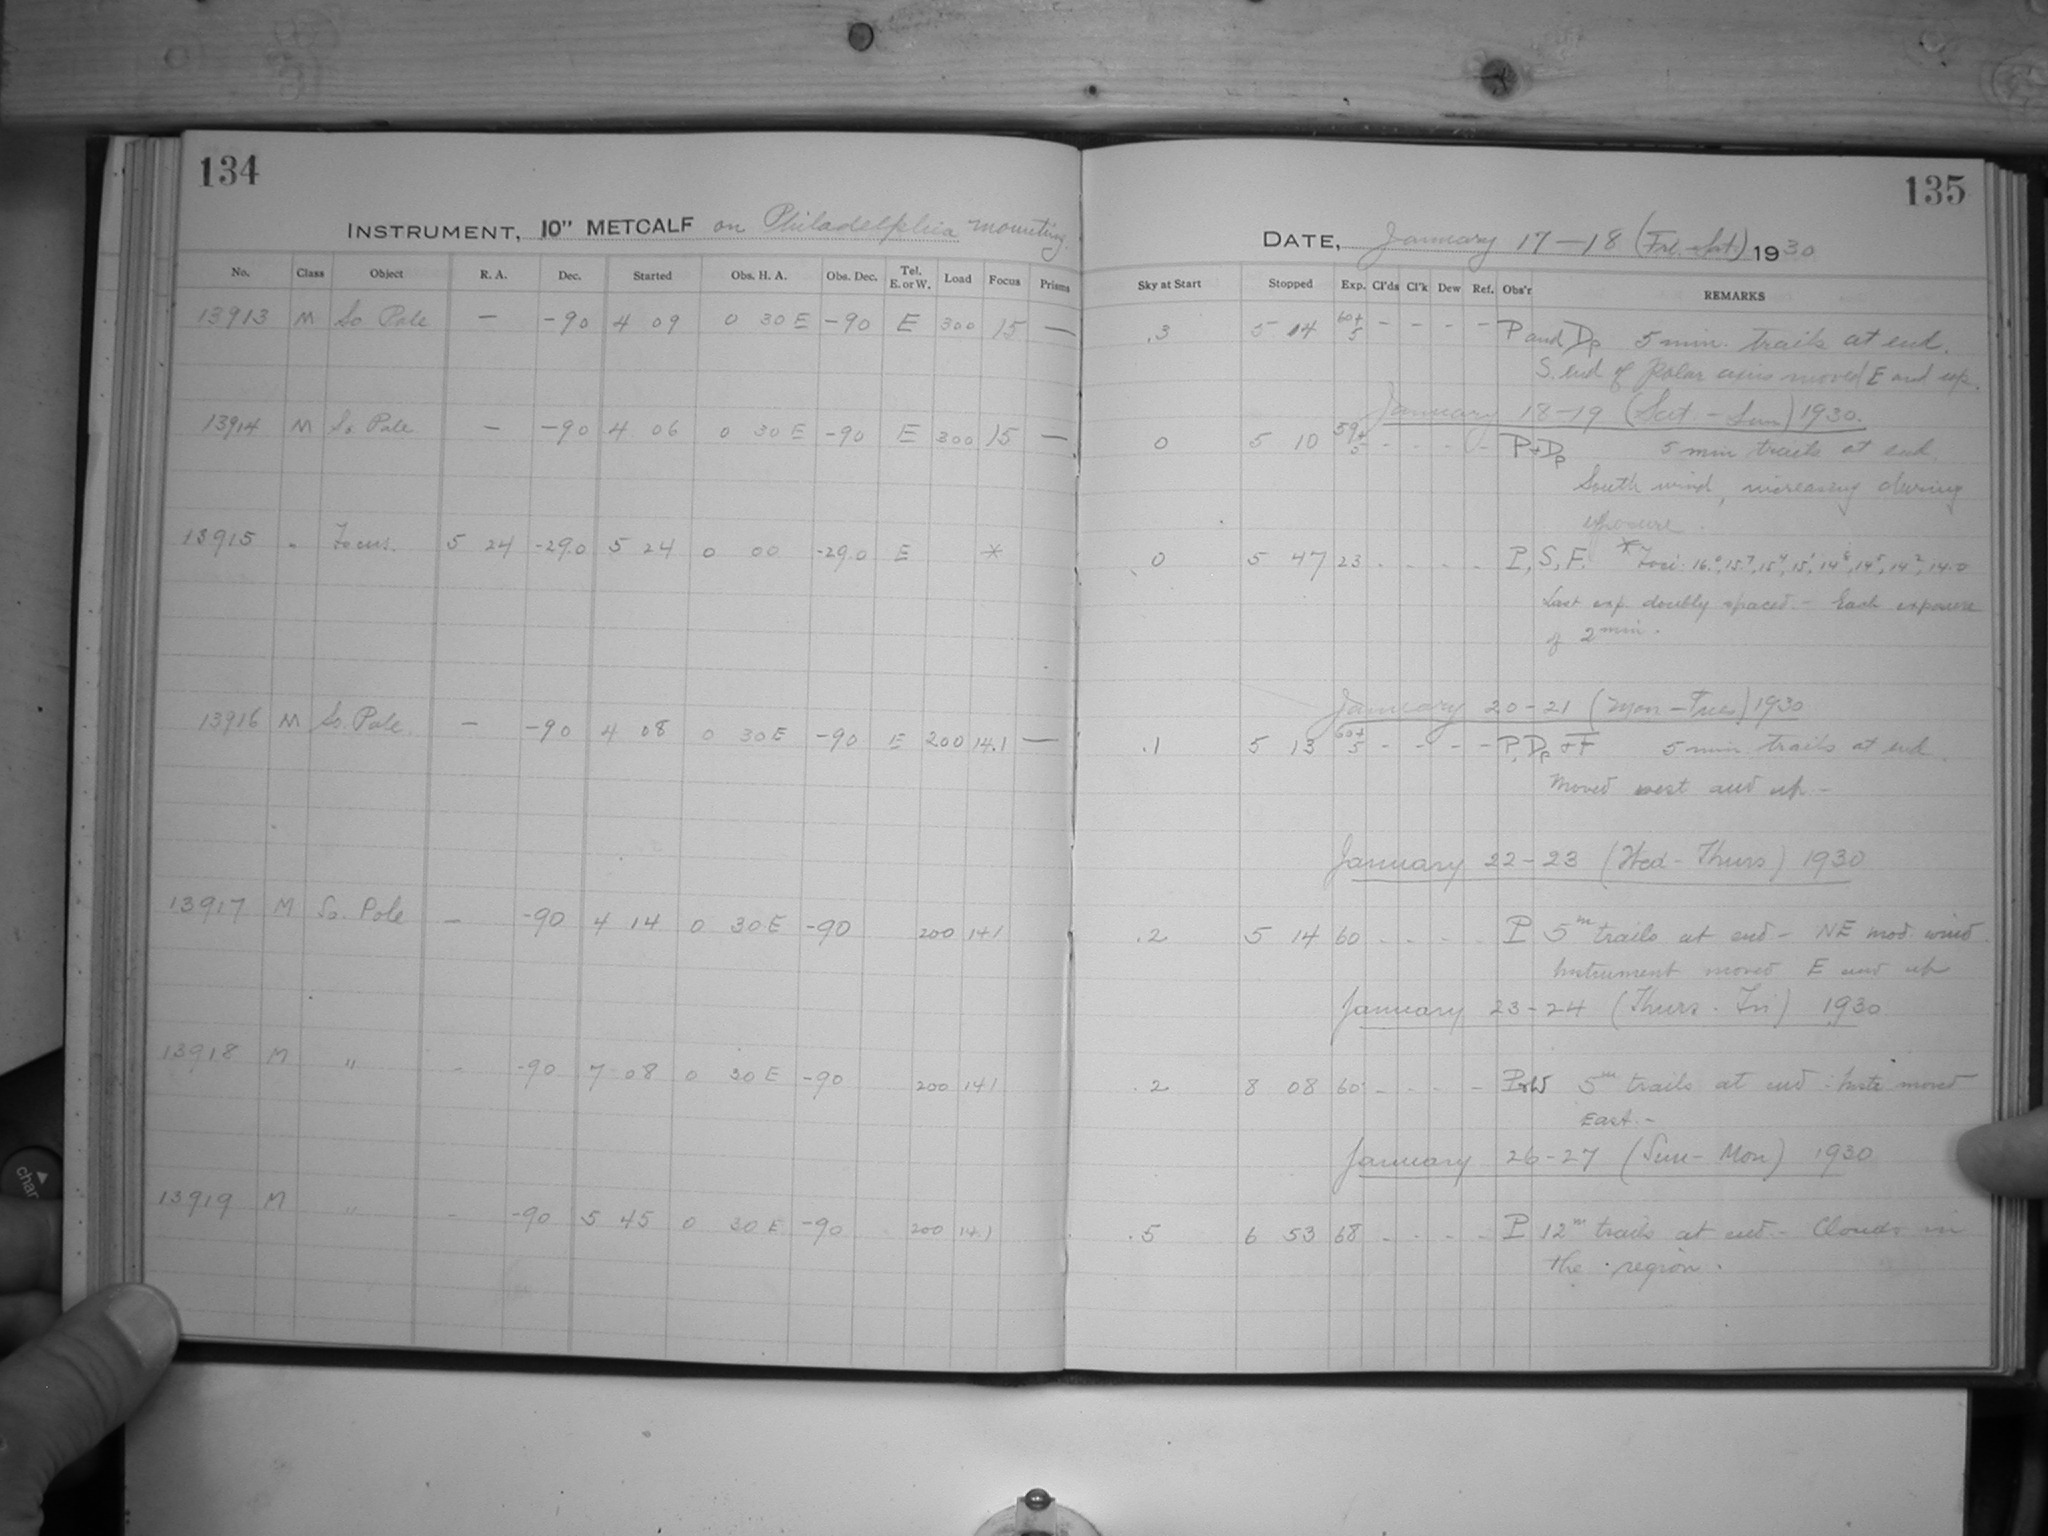 134
INSTRUMENT, 10" METCALF on Philadelphia mounting.
No. Class Object R. A. Dec. Started Obs. H. A. Obs. Dec. Tel. E. or W. Load Focus Prisms
13913 M So Pole — -90 4 09 0 30 E -90 E 300 15 —
13914 M So Pole — -90 4 06 0 30 E -90 E 300 15 —
13915 - Focus. 5 24 -29.0 5 24 0 00 -29.0 E *
13916 M So. Pole. — -90 4 08 0 30 E -90 E 200 14.1 —
13917 M So. Pole — -90 4 14 0 30 E -90 200 14.1
13918 M " - -90 7 08 0 30 E -90 200 14.1
13919 M " - -90 5 45 0 30 E -90 200 14.1
135
DATE, January 17-18 (Fri.-Sat.) 1930
Sky at Start Stopped Exp. Cl'ds Cl'k Dew Ref. Obs'r REMARKS
.3 5 14 60+5 - - - - P and Dp 5 min. trails at end.
S. end of Polar axis moved E and up.
January 18-19 (Sat. - Sun) 1930.
0 5 10 59+5 - - - - P+Dp 5 min trails at end.
South wind, increasing during
exposure.
0 5 47 23 - - - - P, S, F. * Foci. 16.0, 15.7, 15.4, 15.1, 14.8, 14.5, 14.2, 14.0
Last exp. doubly spaced. - Each exposure
of 2 min.
January 20-21 (Mon-Tues) 1930
.1 5 13 60+5 - - - - P, Dp + F 5 min trails at end.
Moved west and up. -
January 22-23 (Wed-Thurs) 1930
.2 5 14 60 - - - - P 5m trails at end - NE mod. wind.
Instrument moved E and up
January 23-24 (Thurs. Fri) 1930
.2 8 08 60 - - - - P+W 5m trails at end. moved
East. -
January 26-27 (Sun-Mon) 1930
.5 6 53 68 - - - - P 12m trails at end. - Clouds in
the region.